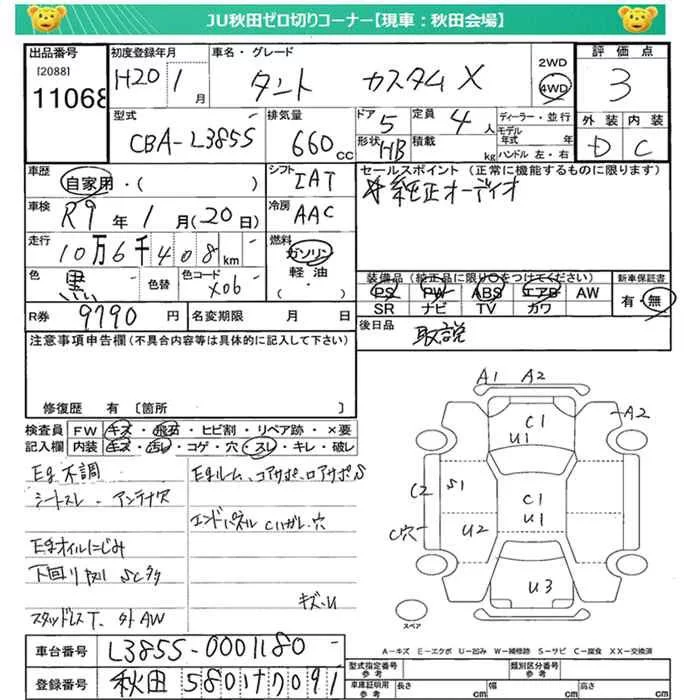 JU秋田ゼロ切りコーナー【現車：秋田会場】
出品番号 初度登録年月 車名・グレード 2WD 4WD 評価点
[2088]
11068 H20 1月 タント カスタムX 3
型式 排気量 ドア 定員 ディーラー・並行 外装 内装
CBA-L385S 660cc 5 4人 モデル年式 年 D C
形状 HB 積載 kg ハンドル 左・右
車歴 自家用・( ) シフト IAT セールスポイント(正常に機能するものに限ります)
車検 R9年1月(20日) 冷房 AAC ☆純正オーディオ
走行 10万6千408km 燃料 ガソリン 軽油 ・( )
色 黒 色替 色コード X06 装備品(純正品に限り○をつけてください) 新車保証書
PS PW ABS エアB AW 有・無
SR ナビ TV カワ
R券 9790円 名変期限 月 日 後日品 取説
注意事項申告欄(不具合内容等は具体的に記入して下さい)
修復歴 有 〔箇所 〕
検査員記入欄 FW キズ・飛石・ヒビ割・リペア跡・×要
内装 キズ・汚レ・コゲ・穴・スレ・キレ・破レ
Eg不調
シートスレ・アンテナ欠
Egオイルにじみ
下回り
スタッドレスT.外AW
Egルーム、コアサポ、ロアサポS
エンドパネル Cハガレ・穴
キズ・U
A1 A2
A2
C1
U1
C2 S1
C1
U1
C穴 U2
U3
スペア
A－キズ E－エクボ U－凹み W－補修跡 S－サビ C－腐食 XX－交換済
車台番号 L385S-0001180
登録番号 秋田 580 け 7091
型式指定番号 参考 類別区分番号 参考
車庫証明用 参考 長さ cm 幅 cm 高さ cm